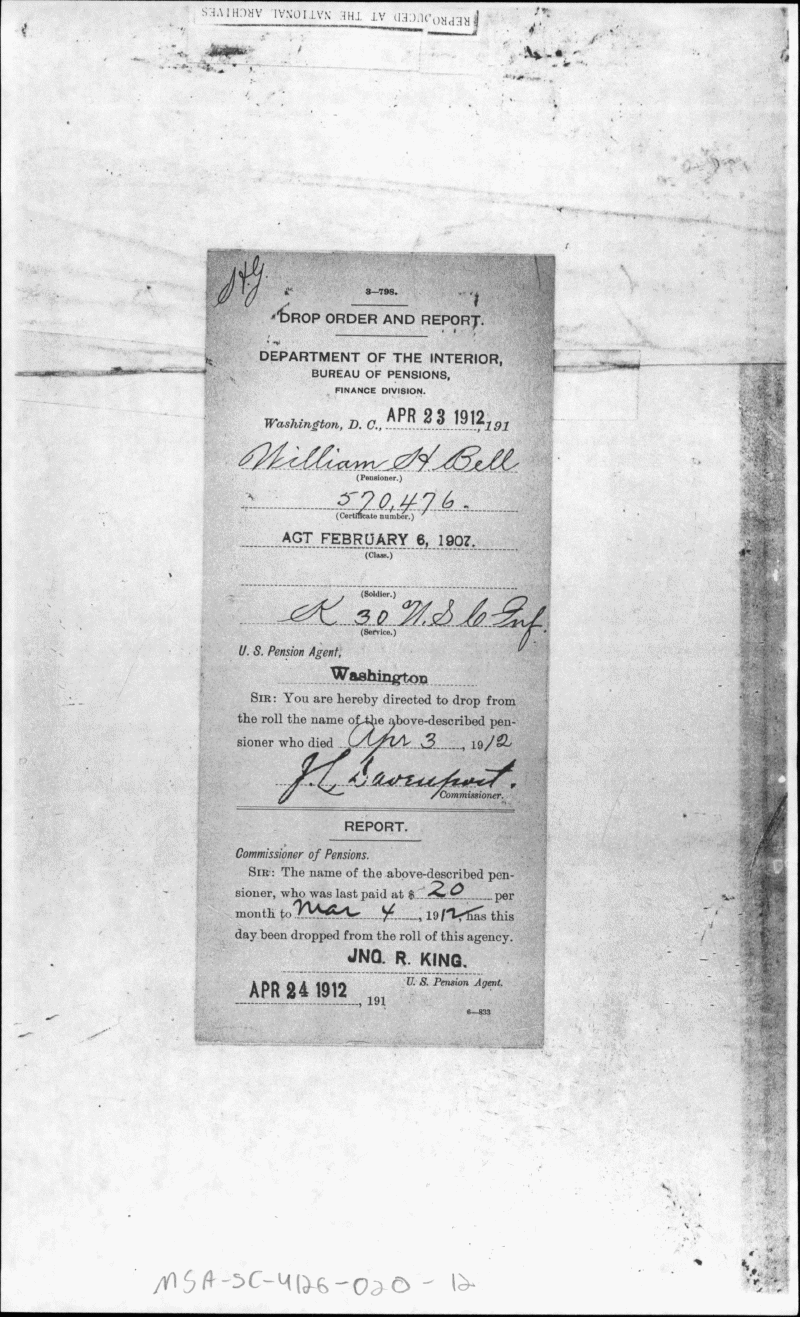 REPRODUCED AT THE NATIONAL ARCHIVES
3—798.
DROP ORDER AND REPORT.
DEPARTMENT OF THE INTERIOR,
BUREAU OF PENSIONS,
FINANCE DIVISION.
Washington, D. C., APR 23 1912, 191
William H Bell
(Pensioner.)
570,476.
(Certificate number.)
ACT FEBRUARY 6, 1907.
(Class.)
(Soldier.)
K 30 U.S.C Inf.
(Service.)
U. S. Pension Agent,
Washington
SIR: You are hereby directed to drop from
the roll the name of the above-described pen-
sioner who died Apr 3, 1912
J.L. Davenport.
Commissioner.
REPORT.
Commissioner of Pensions.
SIR: The name of the above-described pen-
sioner, who was last paid at $ 20 per
month to Mar 4, 1912, has this
day been dropped from the roll of this agency.
JNO. R. KING.
U. S. Pension Agent.
APR 24 1912, 191
6—833
MSA-SC-4126-020-12